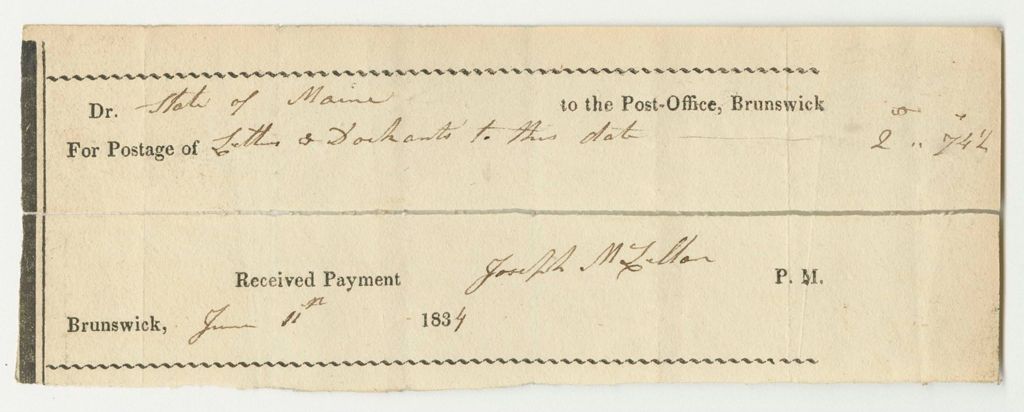 Dr. State of Maine to the Post-Office, Brunswick
For Postage of Letters & to this date 2 .. 74½
Received Payment Joseph McLellan P. M.
Brunswick, June 11th 1834